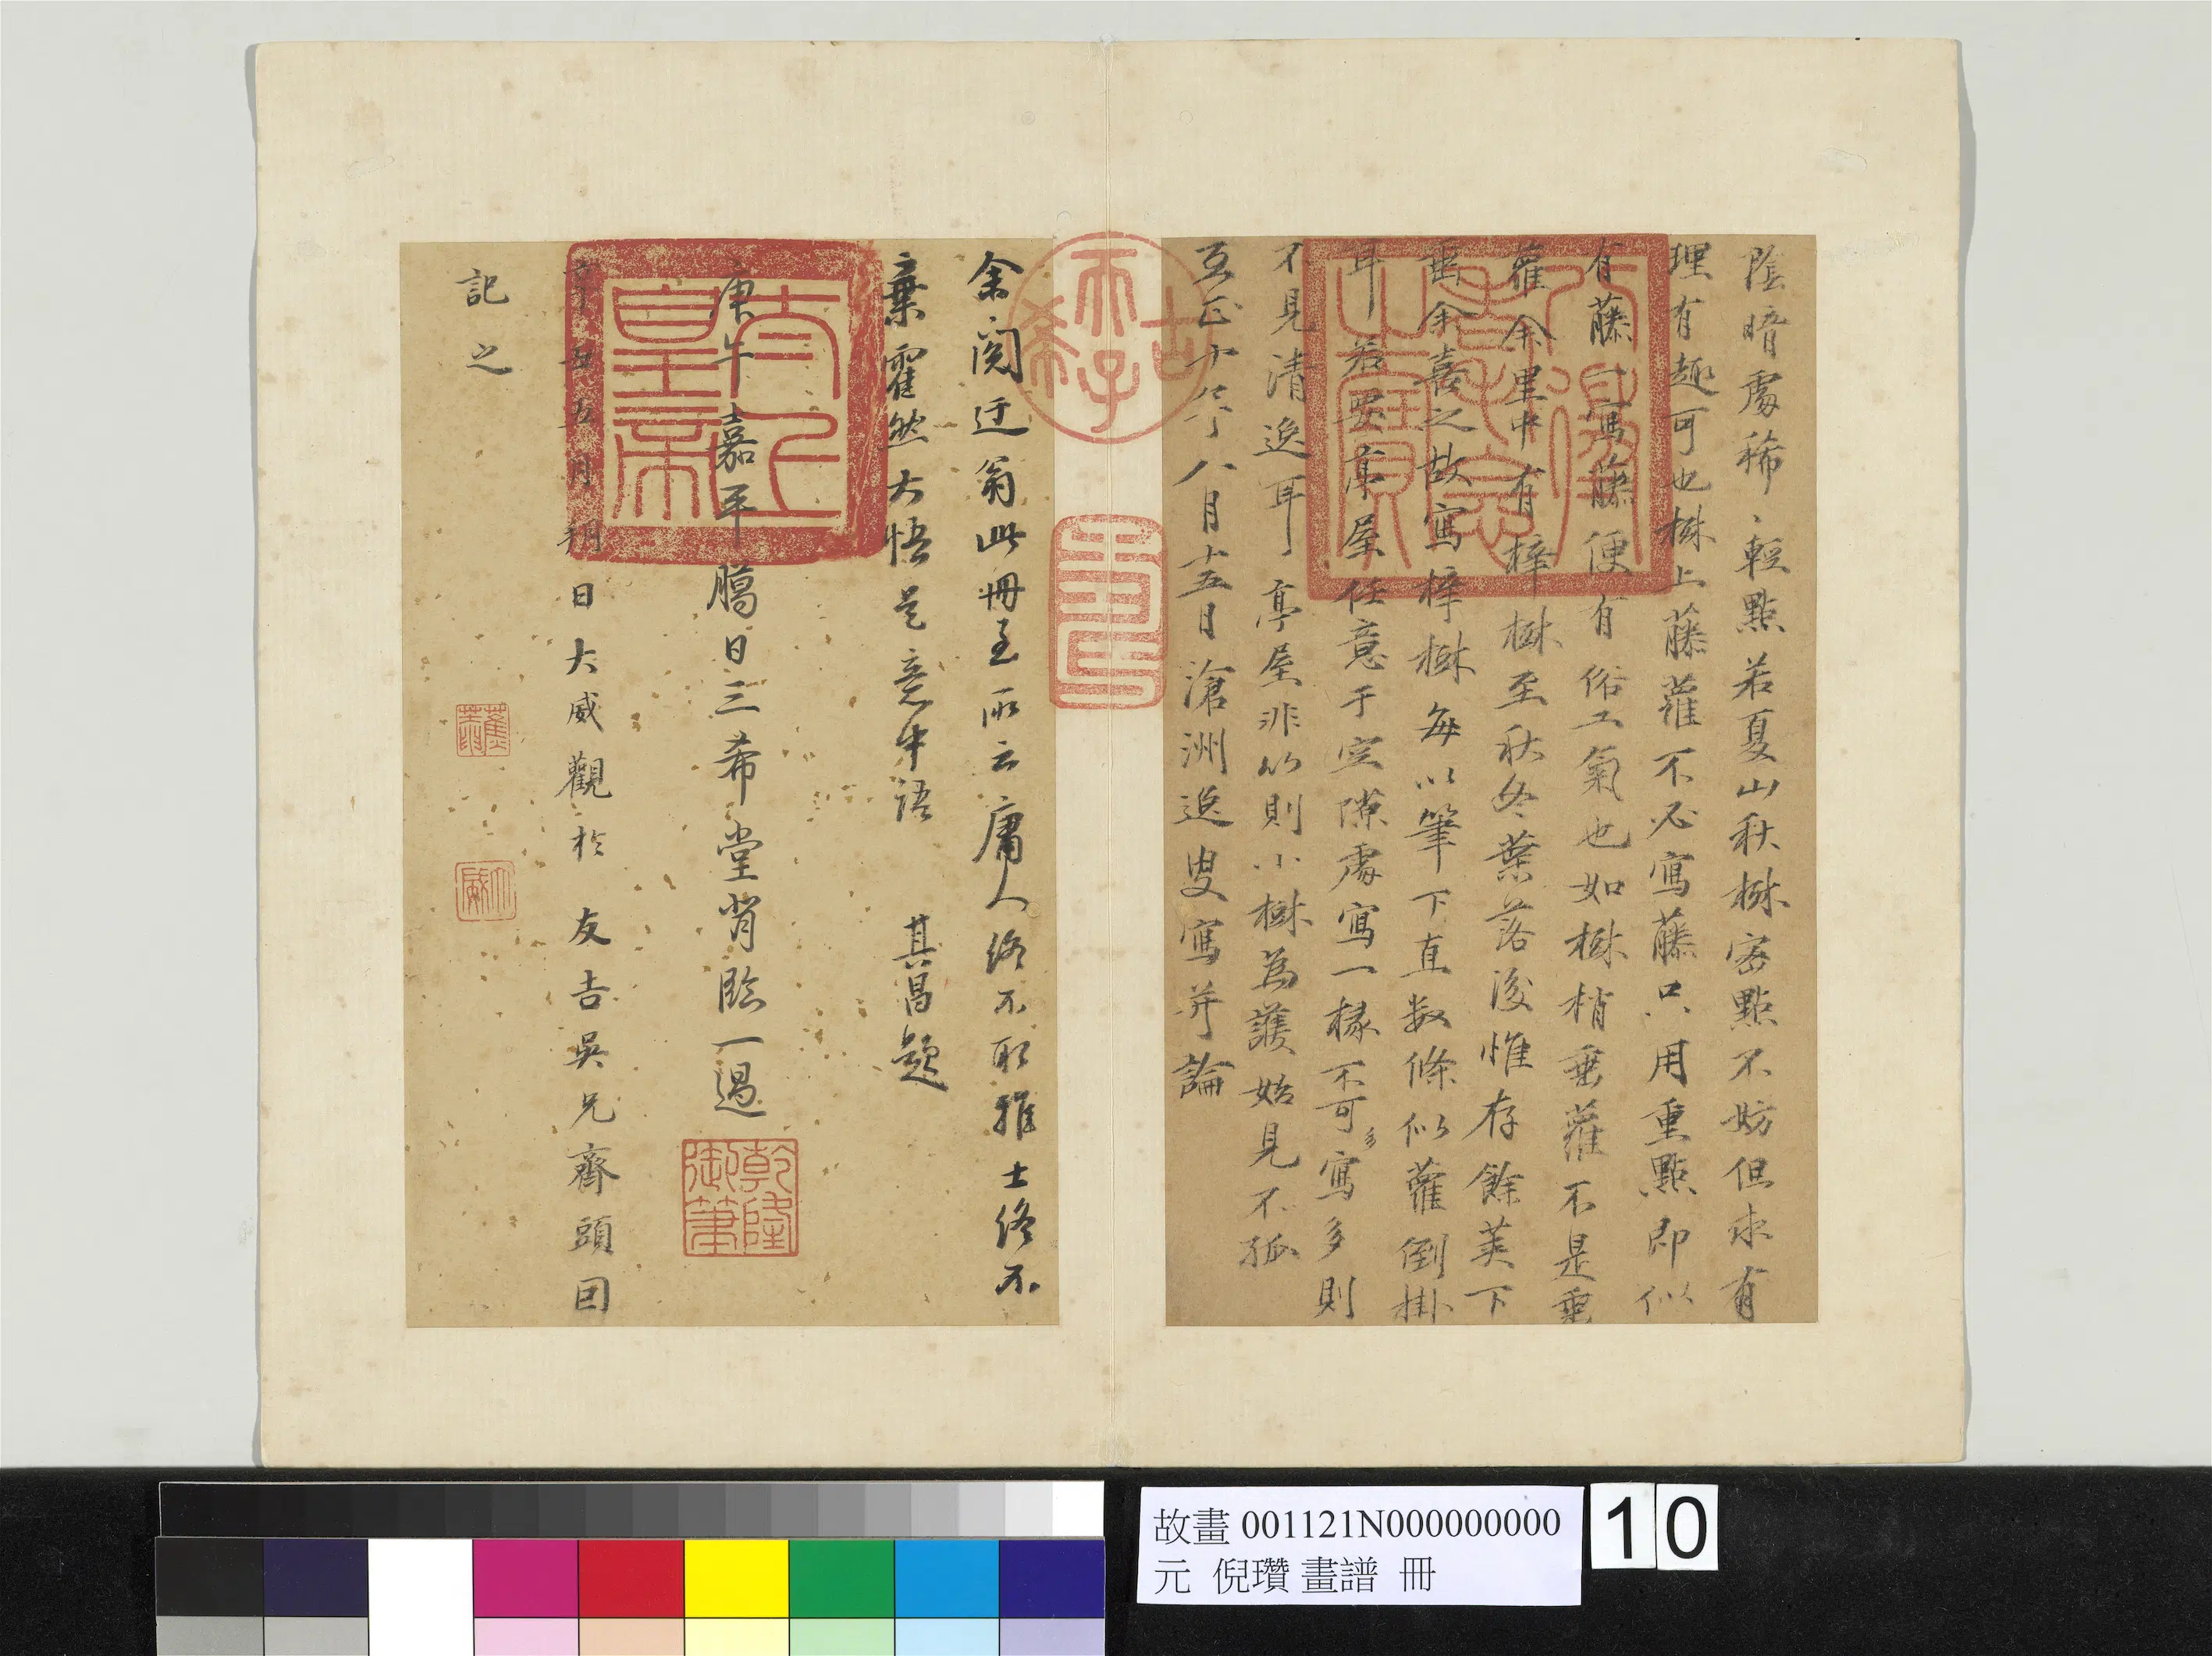 陰暗處稀〻輕點若夏山秋樹密點不妨但求有
理有趣可也樹上藤蘿不必寫藤只用重點即似
有藤一寫藤便有俗工氣也如樹梢垂蘿不是垂
蘿余里中有梓樹至秋冬葉落後惟存餘莢下
垂余喜之故寫梓樹每以筆下直數條似蘿倒掛
耳若安亭屋任意于空隙處寫一椽不可多寫多則
不見清逸耳亭屋非竹則小樹為護始見不孤
至正十年八月十五日滄洲逸叟寫并論
余閱迂翁此冊至所云庸人終不取雅士終不
棄霍然大悟是意中語 其昌題
庚午嘉平臈日三希堂背臨一過
日大威觀於友古吳兄齋頭因
記之
太上皇帝
古希天子
壽
乾隆御筆
大威
八徵耄念之寶
故畫 001121N000000000
元 倪瓚 畫譜 冊
10